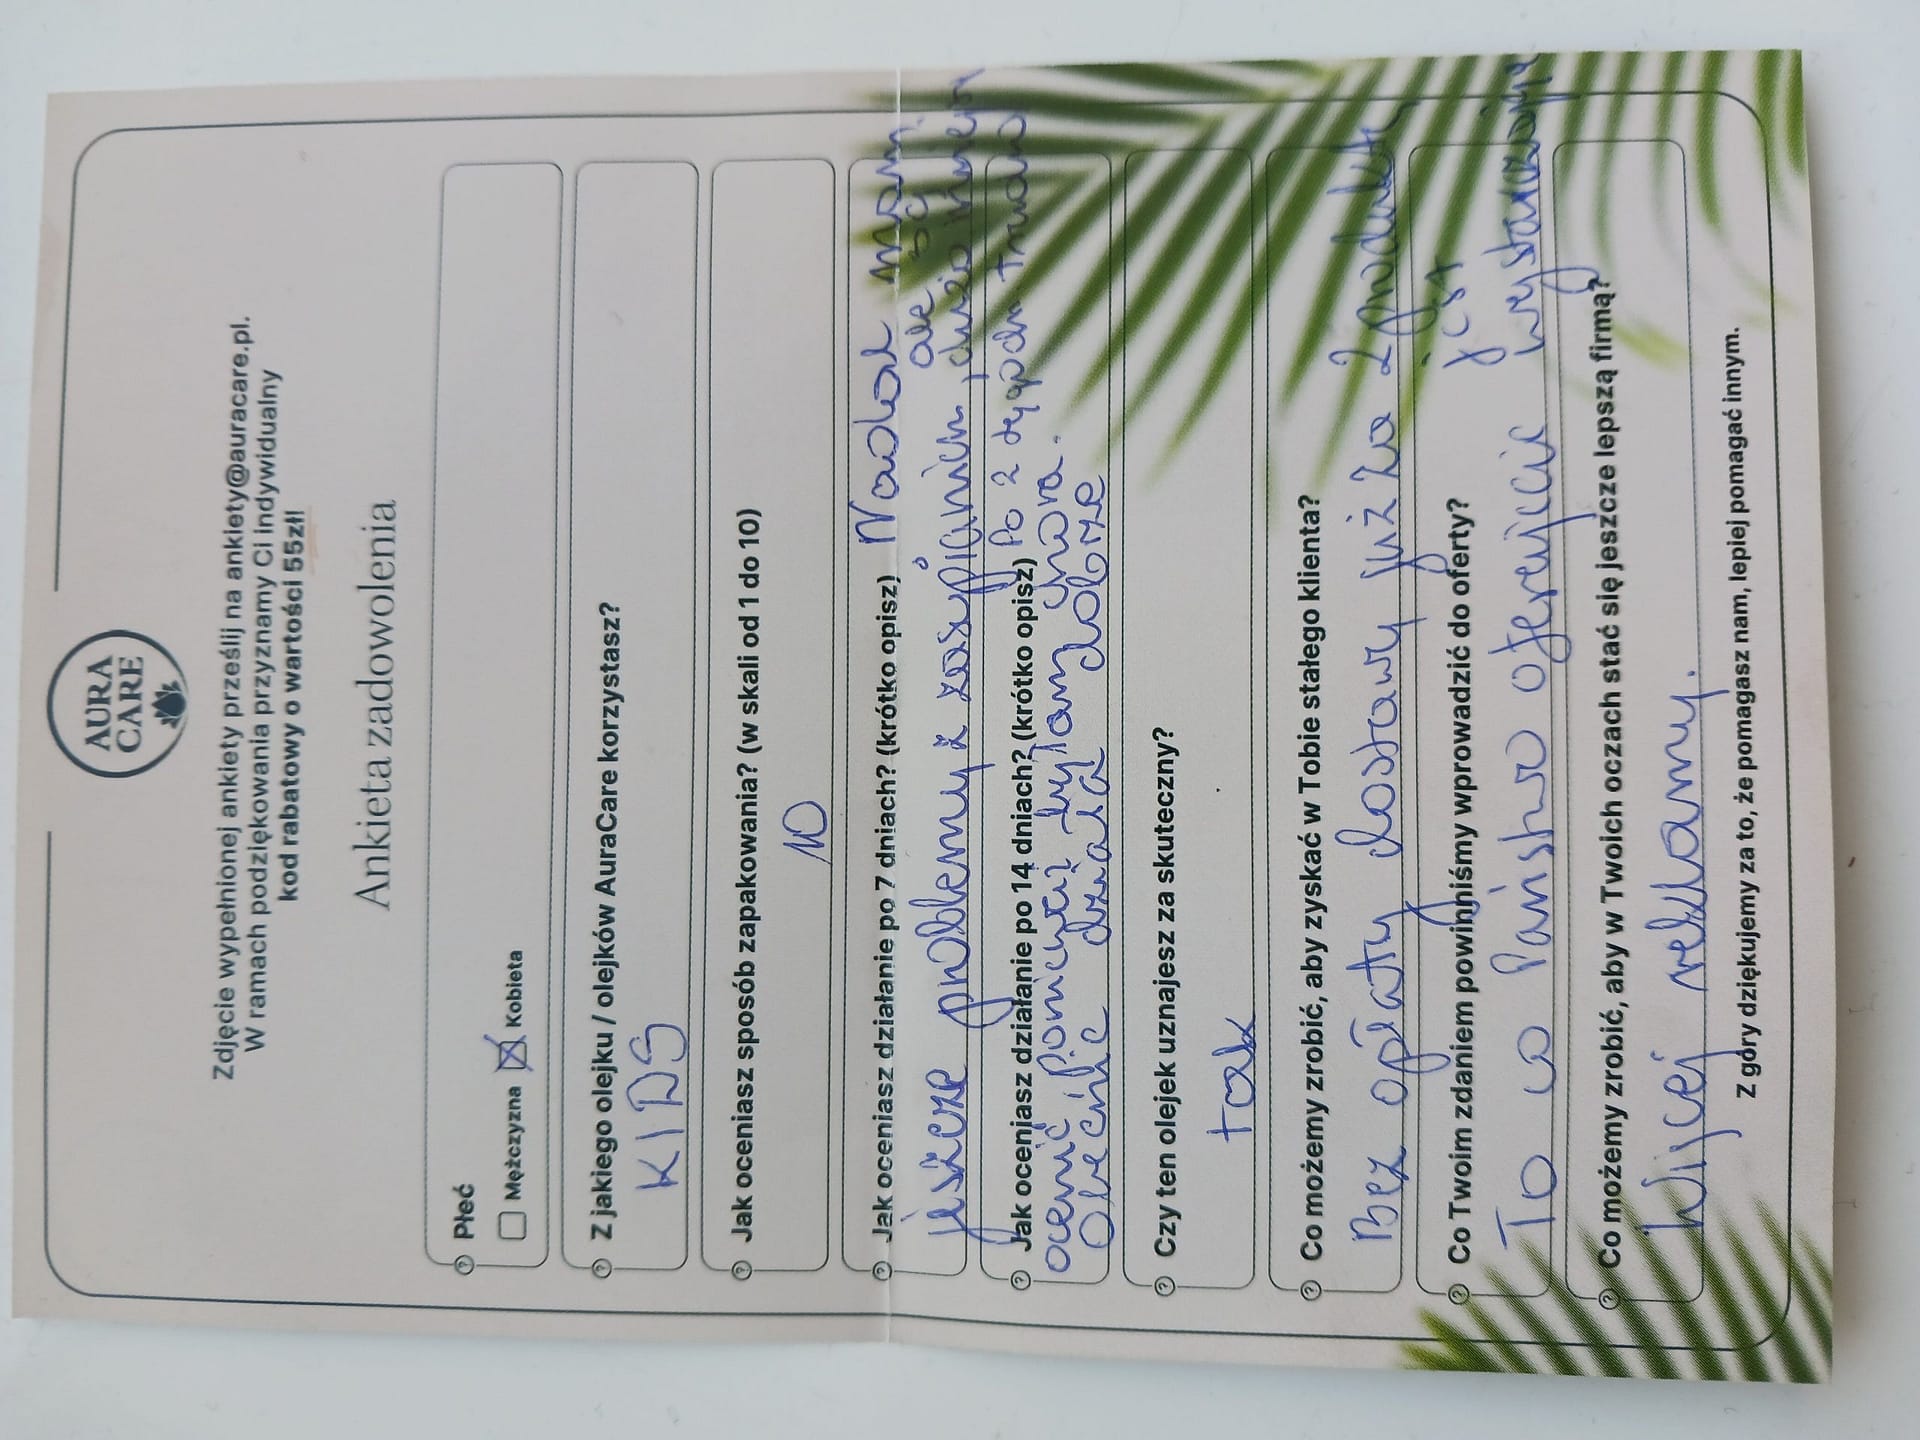 AURA
CARE
Zdjęcie wypełnionej ankiety prześlij na ankiety@auracare.pl.
W ramach podziękowania przyznamy Ci indywidualny
kod rabatowy o wartości 55zł!
Ankieta zadowolenia
Płeć
Mężczyzna Kobieta
Z jakiego olejku / olejków AuraCare korzystasz?
KIDS
Jak oceniasz sposób zapakowania? (w skali od 1 do 10)
10
Jak oceniasz działanie po 7 dniach? (krótko opisz) Nadal mam
jeszcze problemy z zasypianiem, ale są dużo mniejsze
Jak oceniasz działanie po 14 dniach? (krótko opisz) Po 2 tygodn trudno
ocenić, ponieważ byłam chora.
Obecnie działa dobrze
Czy ten olejek uznajesz za skuteczny?
tak
Co możemy zrobić, aby zyskać w Tobie stałego klienta?
Bez opłaty dostawy już za 2 produkty
Co Twoim zdaniem powinniśmy wprowadzić do oferty?
To co Państwo oferujecie jest wystarczające
Co możemy zrobić, aby w Twoich oczach stać się jeszcze lepszą firmą?
Więcej reklamy.
Z góry dziękujemy za to, że pomagasz nam, lepiej pomagać innym.